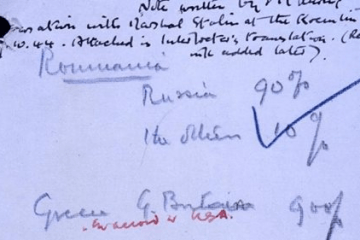 Note written by
with Marshal Stalin at the Kremlin
.W.44. Attached is Interpreter's translation. (Re
added later).
Roumania
Russia 90%
The others 10%
Greece G. Britain 90%
in accord w USA.